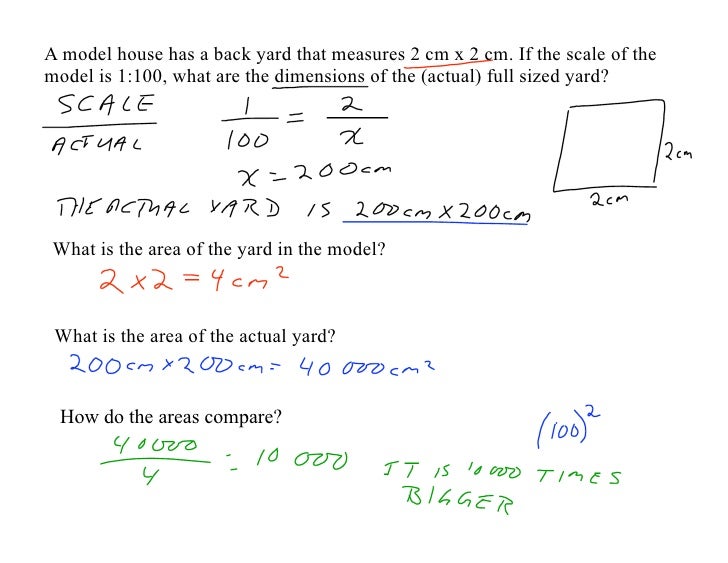 A model house has a back yard that measures 2 cm x 2 cm. If the scale of the
model is 1:100, what are the dimensions of the (actual) full sized yard?
SCALE
ACTUAL
1/100 = 2/x
x = 200cm
2cm
2cm
THE ACTUAL YARD IS 200cm x 200cm
What is the area of the yard in the model?
2 x 2 = 4cm²
What is the area of the actual yard?
200cm x 200cm = 40 000cm²
How do the areas compare?
(100)²
40000/4 = 10 000
IT IS 10 000 TIMES
BIGGER